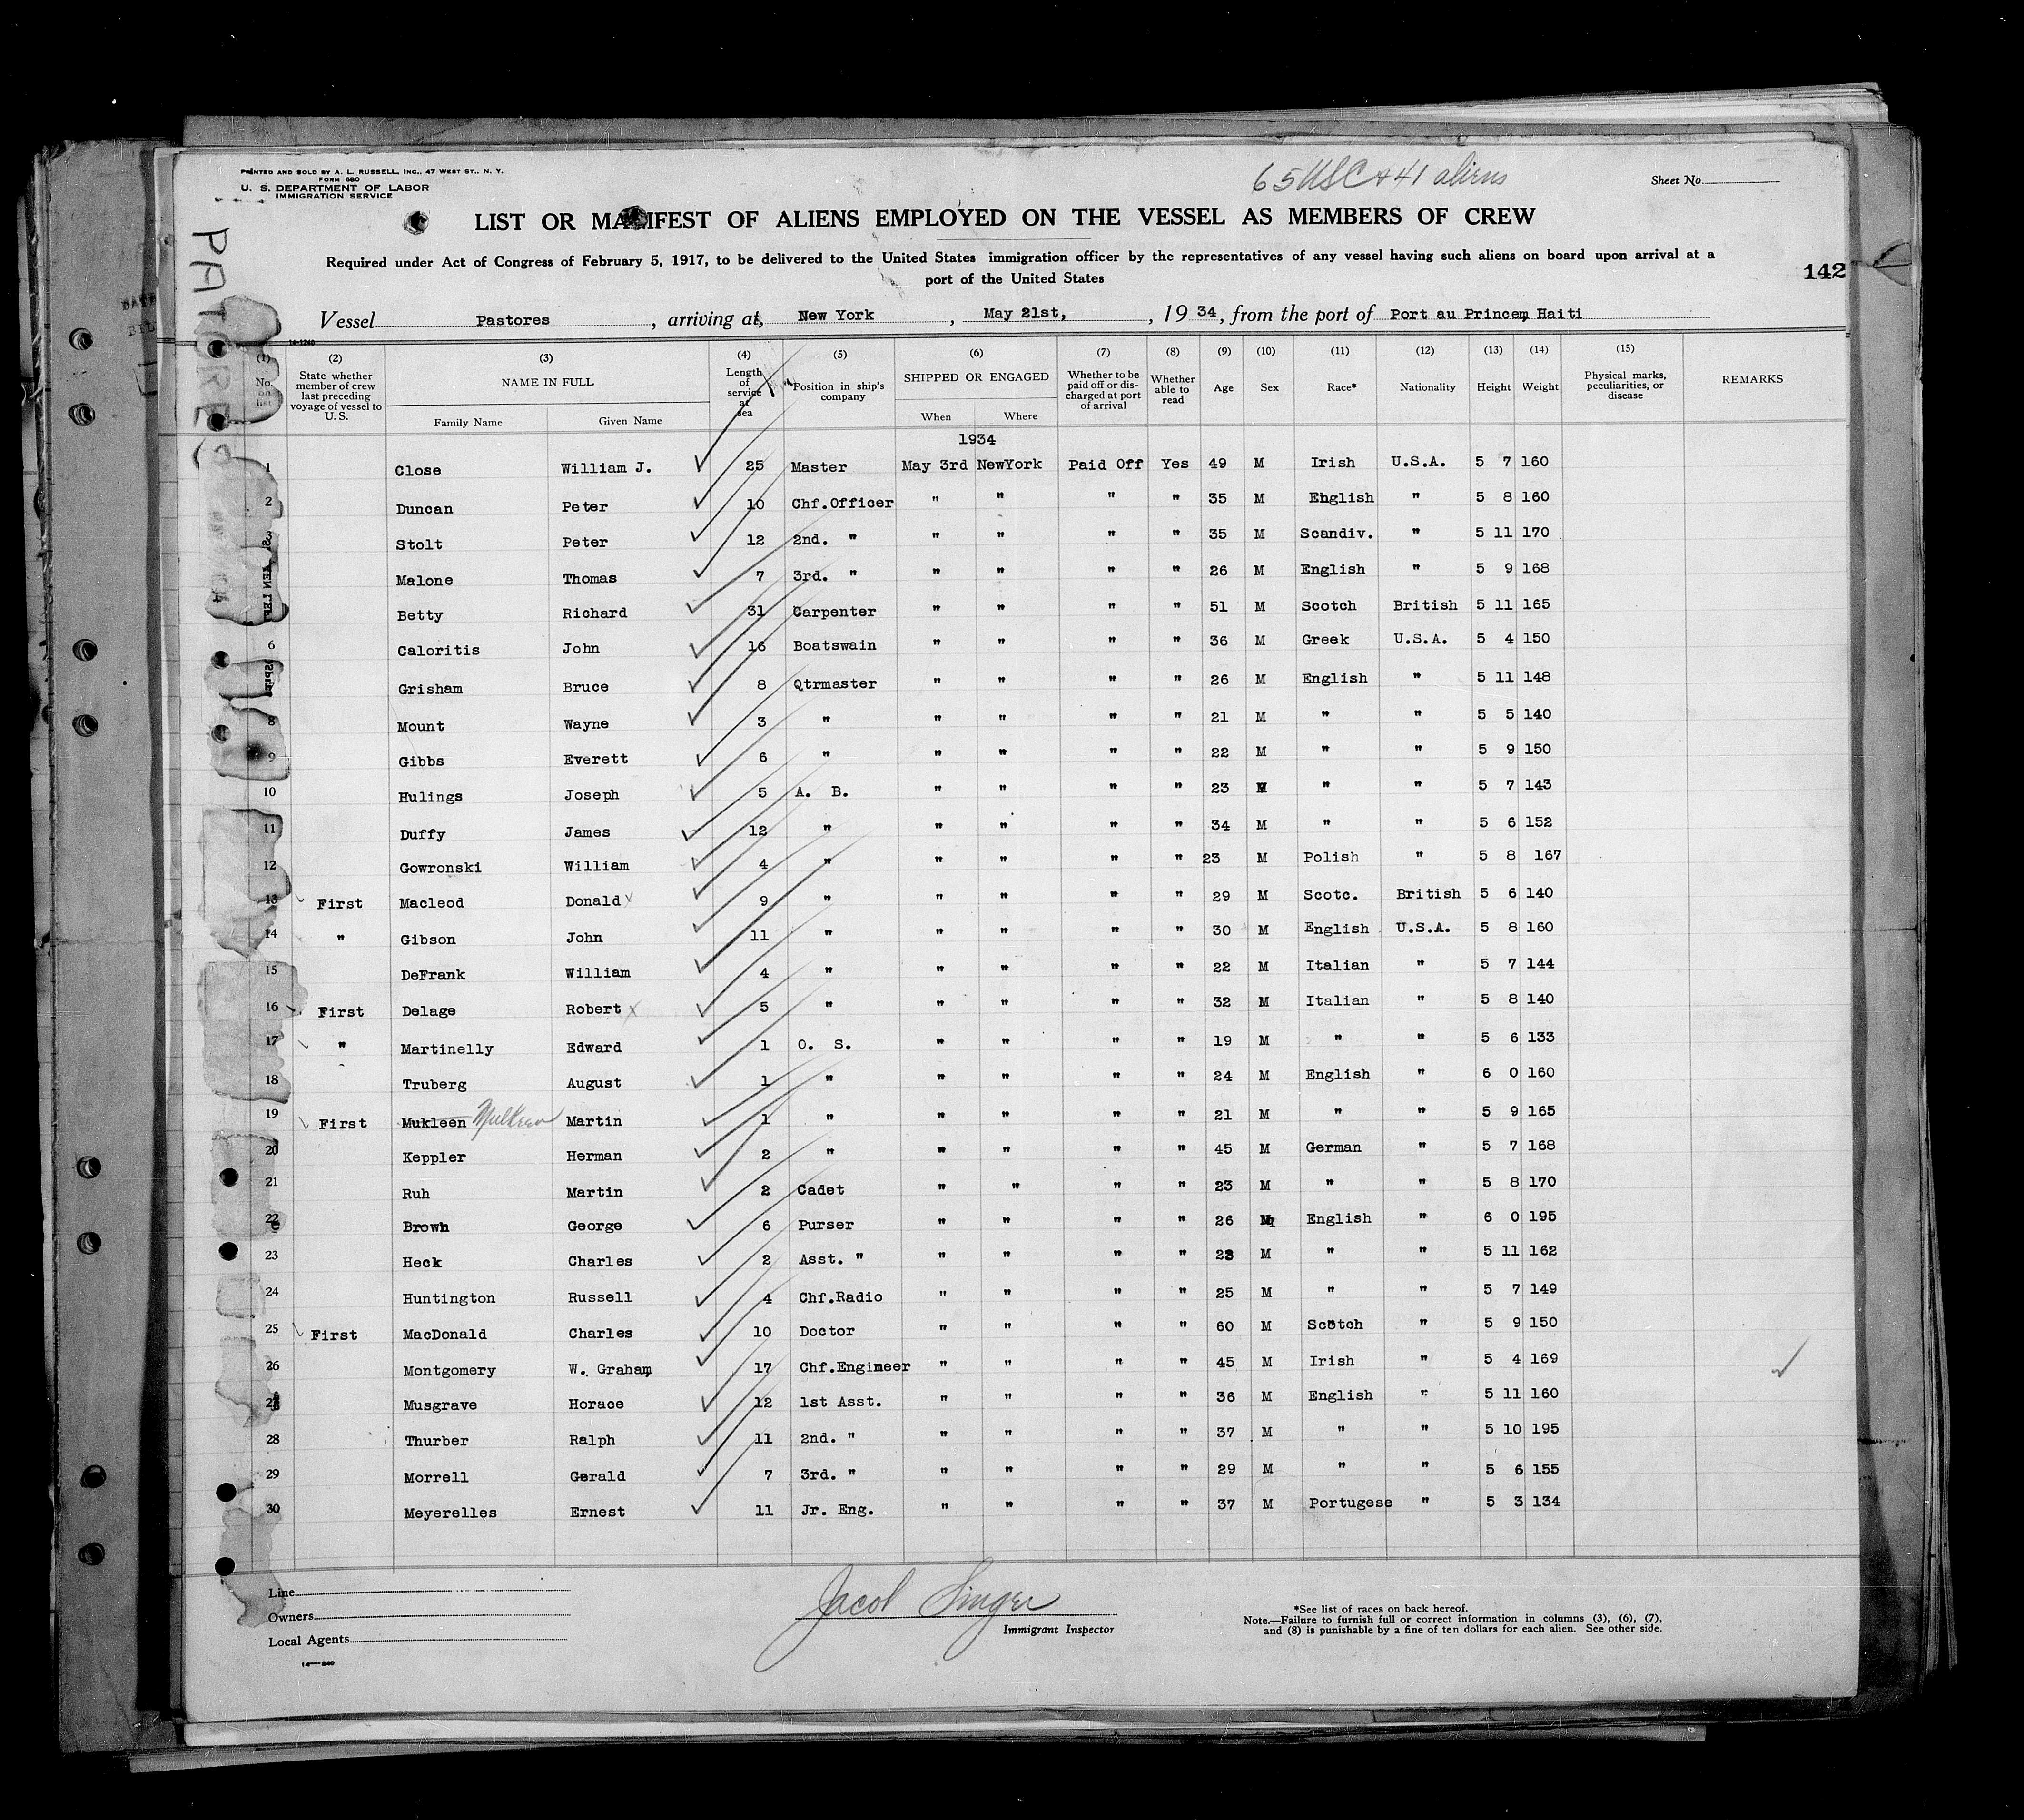 PRINTED AND SOLD BY A. L. RUSSELL, INC., 47 WEST ST., N. Y.
FORM 680
U. S. DEPARTMENT OF LABOR
IMMIGRATION SERVICE
65 USC & 41 aliens
Sheet No.
LIST OR MANIFEST OF ALIENS EMPLOYED ON THE VESSEL AS MEMBERS OF CREW
Required under Act of Congress of February 5, 1917, to be delivered to the United States immigration officer by the representatives of any vessel having such aliens on board upon arrival at a
port of the United States
142
Vessel Pastores, arriving at, New York, May 21st, , 19 34, from the port of Port au Prince, Haiti
14-1240
(1) No. on list (2) State whether member of crew last preceding voyage of vessel to U. S. (3) NAME IN FULL Family Name Given Name (4) Length of service at sea (5) Position in ship's company (6) SHIPPED OR ENGAGED When Where (7) Whether to be paid off or discharged at port of arrival (8) Whether able to read (9) Age (10) Sex (11) Race* (12) Nationality (13) Height (14) Weight (15) Physical marks, peculiarities, or disease REMARKS
1934
1 Close William J. 25 Master May 3rd NewYork Paid Off Yes 49 M Irish U.S.A. 5 7 160
2 Duncan Peter 10 Chf.Officer " " " " 35 M English " 5 8 160
Stolt Peter 12 2nd. " " " " " 35 M Scandiv. " 5 11 170
Malone Thomas 7 3rd. " " " " " 26 M English " 5 9 168
Betty Richard 31 Carpenter " " " " 51 M Scotch British 5 11 165
6 Caloritis John 16 Boatswain " " " " 36 M Greek U.S.A. 5 4 150
Grisham Bruce 8 Qtrmaster " " " " 26 M English " 5 11 148
8 Mount Wayne 3 " " " " " 21 M " " 5 5 140
9 Gibbs Everett 6 " " " " " 22 M " " 5 9 150
10 Hulings Joseph 5 A. B. " " " " 23 M " " 5 7 143
11 Duffy James 12 " " " " " 34 M " " 5 6 152
12 Gowronski William 4 " " " " " 23 M Polish " 5 8 167
13 First Macleod Donald 9 " " " " " 29 M Scotc. British 5 6 140
14 " Gibson John 11 " " " " " 30 M English U.S.A. 5 8 160
15 DeFrank William 4 " " " " " 22 M Italian " 5 7 144
16 First Delage Robert 5 " " " " " 32 M Italian " 5 8 140
17 " Martinelly Edward 1 O. S. " " " " 19 M " " 5 6 133
18 Truberg August 1 " " " " " 24 M English " 6 0 160
19 First Mukleen Mulkeen Martin 1 " " " " " 21 M " " 5 9 165
20 Keppler Herman 2 " " " " " 45 M German " 5 7 168
21 Ruh Martin 2 Cadet " " " " 23 M " " 5 8 170
22 Brown George 6 Purser " " " " 26 M English " 6 0 195
23 Heck Charles 2 Asst. " " " " " 23 M " " 5 11 162
24 Huntington Russell 4 Chf.Radio " " " " 25 M " " 5 7 149
25 First MacDonald Charles 10 Doctor " " " " 60 M Scotch " 5 9 150
26 Montgomery W. Graham 17 Chf.Engineer " " " " 45 M Irish " 5 4 169
27 Musgrave Horace 12 1st Asst. " " " " 36 M English " 5 11 160
28 Thurber Ralph 11 2nd. " " " " " 37 M " " 5 10 195
29 Morrell Gerald 7 3rd. " " " " " 29 M " " 5 6 155
30 Meyerelles Ernest 11 Jr. Eng. " " " " 37 M Portugese " 5 3 134
Line
Owners
Local Agents
Jacob Singer
Immigrant Inspector
*See list of races on back hereof.
Note.—Failure to furnish full or correct information in columns (3), (6), (7),
and (8) is punishable by a fine of ten dollars for each alien. See other side.